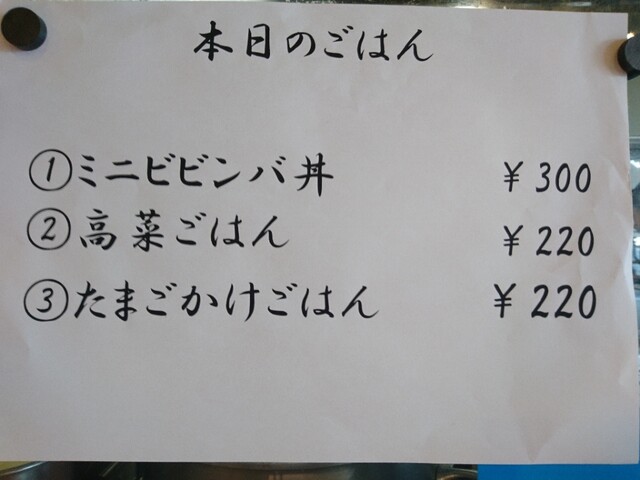 本日のごはん
①ミニビビンバ丼 ¥300
②高菜ごはん ¥220
③たまごかけごはん ¥220